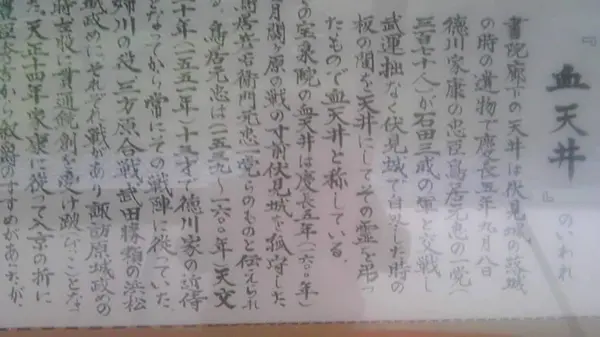 『血天井』のいわれ
書院廊下の天井は伏見城の落城
の時の遺物で慶長五年九月八日
徳川家康の忠臣鳥居元忠の一党(
三百七十人)が石田三成の軍と交戦し
武運拙なく伏見城で自刃した時の
板の間を天井にしてその霊を弔っ
たもので血天井と称している。
の宝泉院の血天井は慶長五年(一六〇〇年)
月関ヶ原の戦の寸前伏見城を孤守した、
鳥居彦右衛門元忠一党らのものと伝えられ
が、鳥居元忠は(一五三九〜一六〇〇年)天文
二十年(一五五一年)十三才で徳川家の近侍
となってから常にその戦陣に従っていた、
姉川の役三方原合戦、武田勝頼の浜松
城攻めにそれぞれ戦功あり諏訪原城攻めの
時左股に貫通銃創を受け跛びことなっ
た。天正十四年家康に従って入京の折に